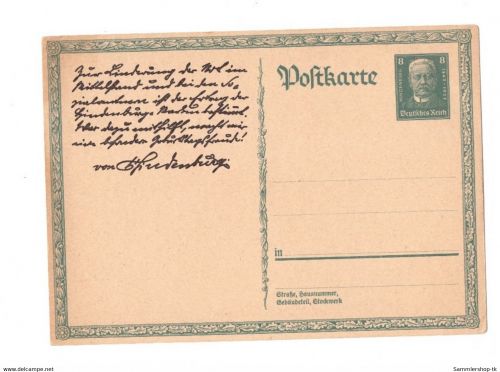 Zur Linderung der Not im
Mittelstand und bei den So-
zialrentnern ist der der
Hindenburg Karten bestimmt.
Wer dazu mithilft, macht mir
eine besondere Geburtstagsfreude!
von Hindenburg
Postkarte
8 8
Deutsches Reich
in
Straße, Hausnummer,
Gebäudeteil, Stockwerk
www.delcampe.net
Sammlershop-tk